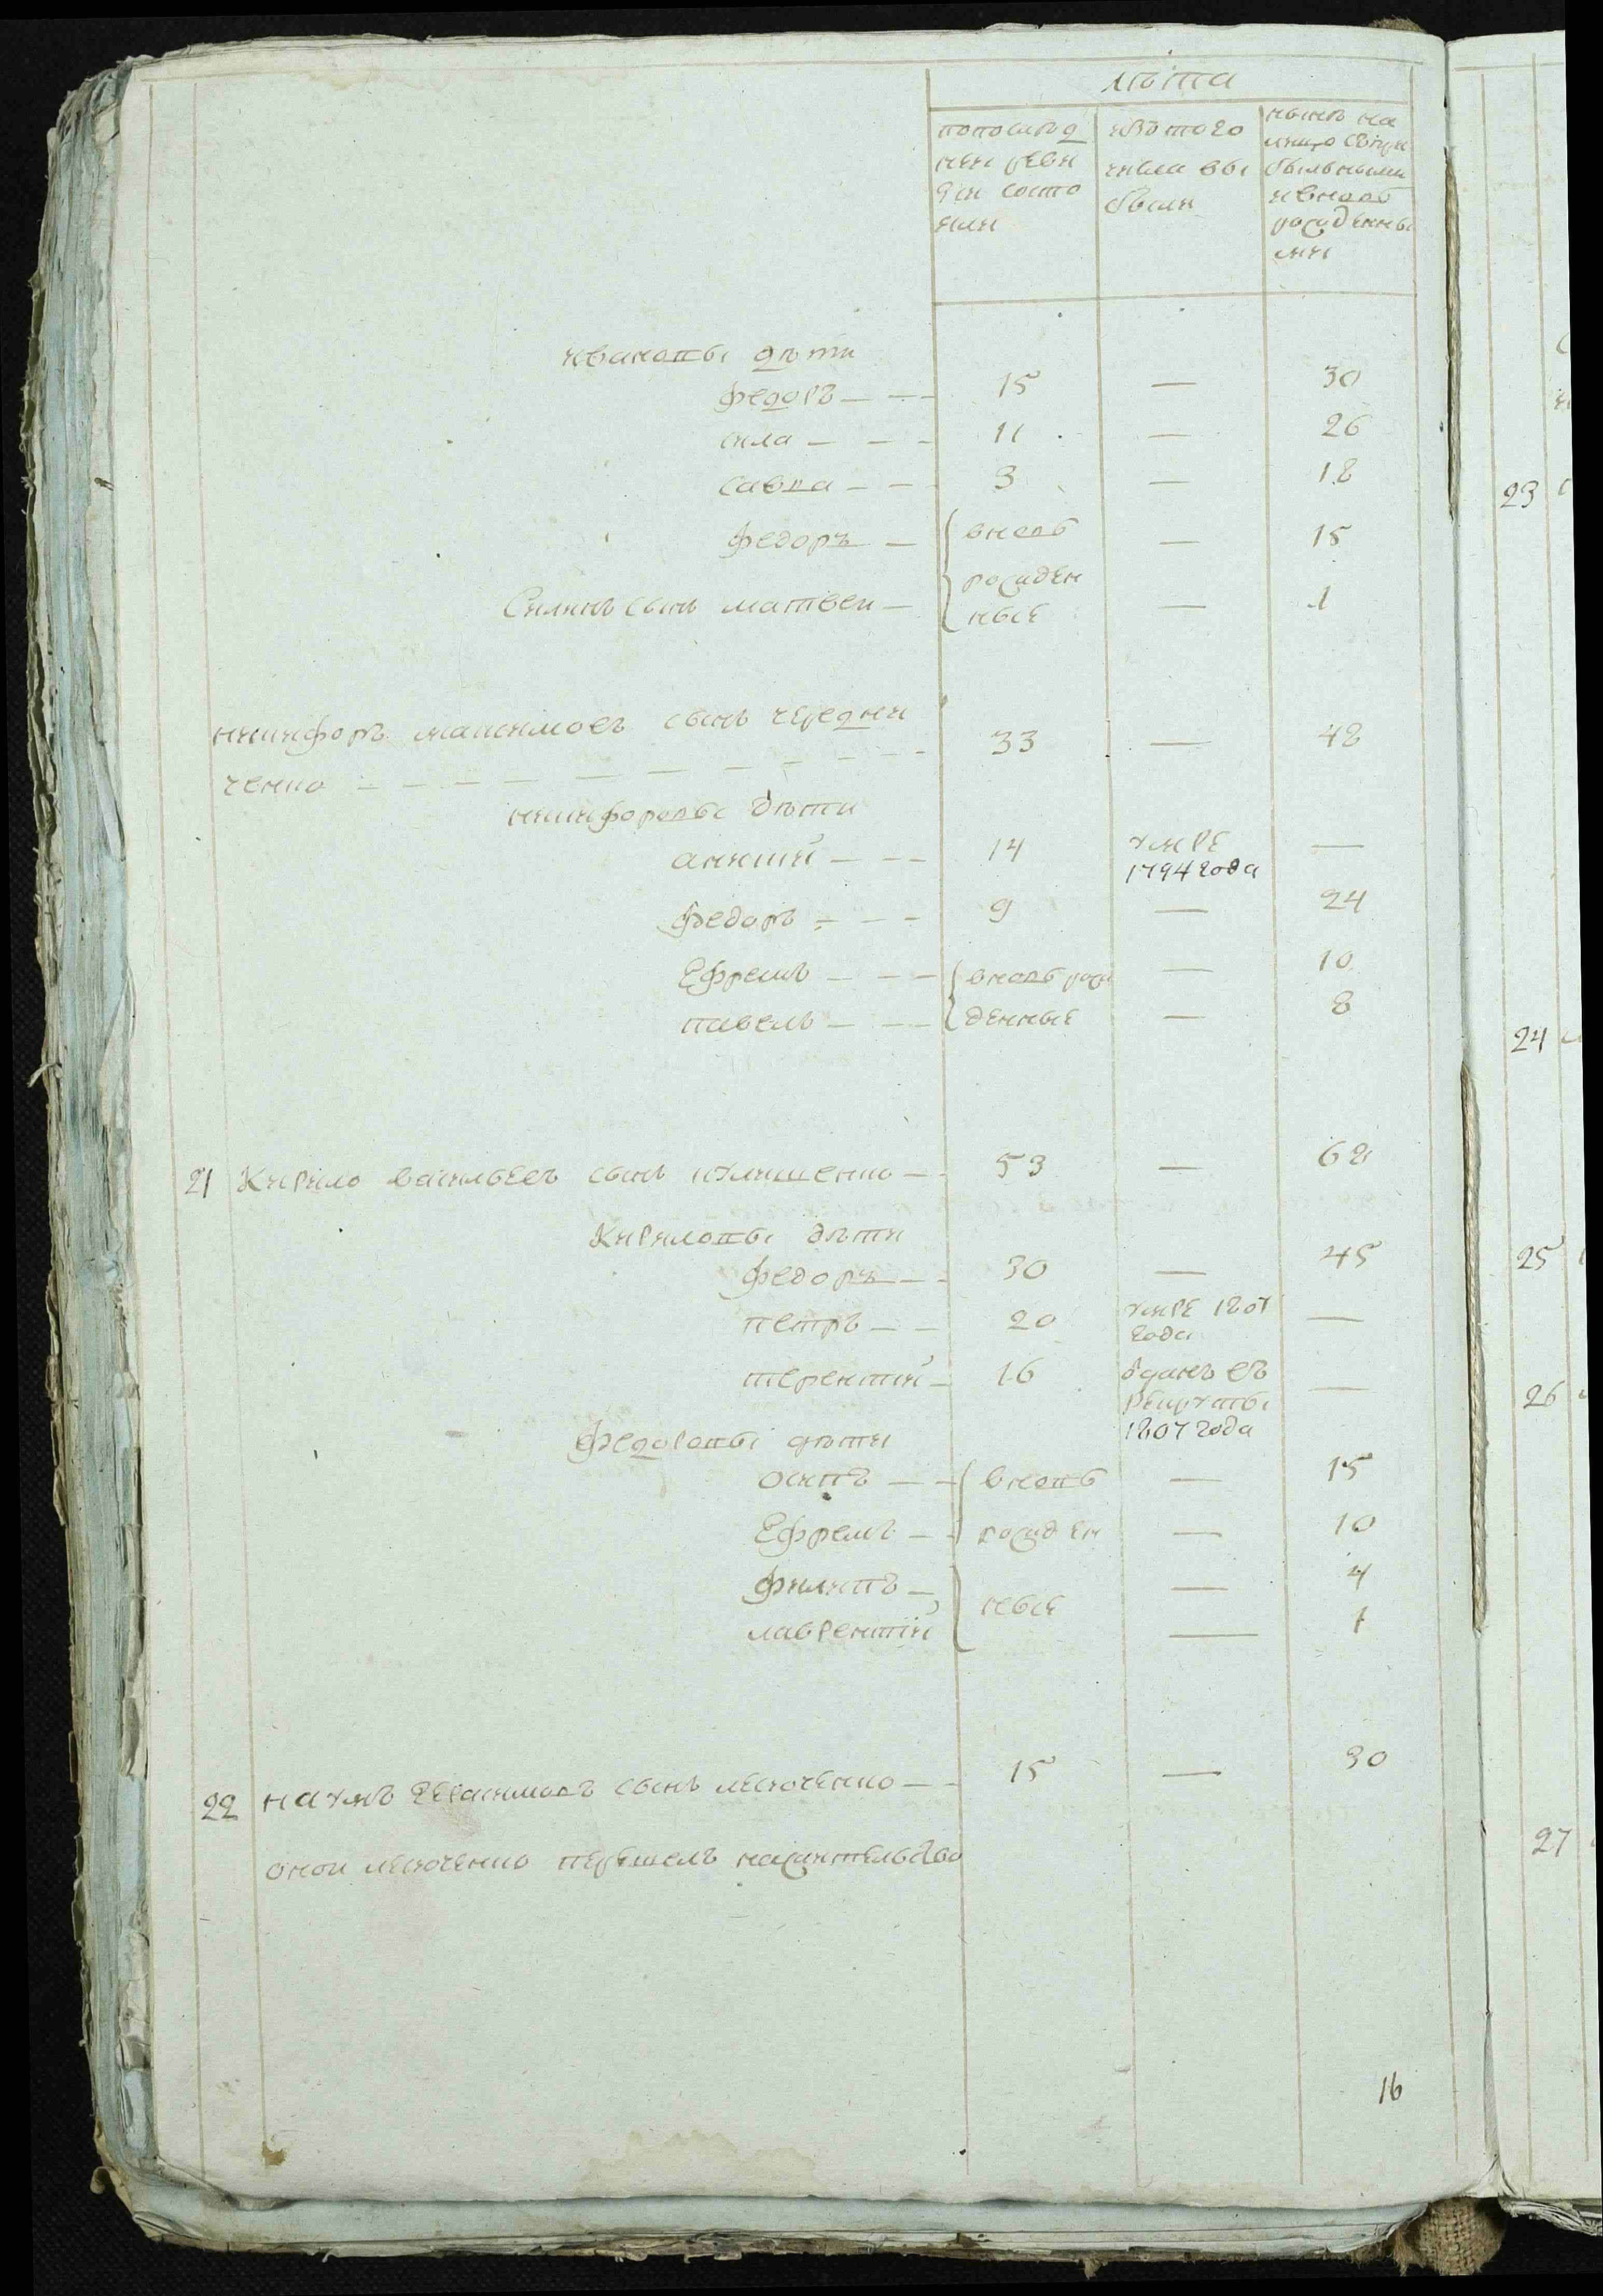 лѣта
попослѣд
неи реви
зіи состо
яли
изъ того
числа вы
были
нынѣ на
лицо съпри
былыми
ивновь
рожденны
ми
ивановы дѣти
федоръ — — — 15 — 30
сила — — — 11 — 26
савва — — 3 — 18
федоръ — вновь — 15
рожден
Силинъ сынъ матвеи — ные — 1
никифоръ максимовъ сынъ чередни
ченко — — — — — — — — 33 — 48
никифоровы дѣти
аникій — — — 14 умре —
1794 года
федоръ — — — 9 — 24
Ефремъ — — — вновь рож — 10
павелъ — — — денные — 8
21 Кирило васильевъ сынъ кулишенко — 53 — 68
Кириловы дѣти
федоръ — — 30 — 45
петръ — — 20 умре 1807 —
года
терентій — 16 одданъ въ —
рекруты
1807 года
федоровы дѣти
осипъ — — вновь — 15
Ефремъ — — рожден — 10
филипъ — — 4
ные
лаврентій — 1
22 наумъ Герасимовъ сынъ — — 15 — 30
онои перешелъ нажительство
16
23
24
25
26
27